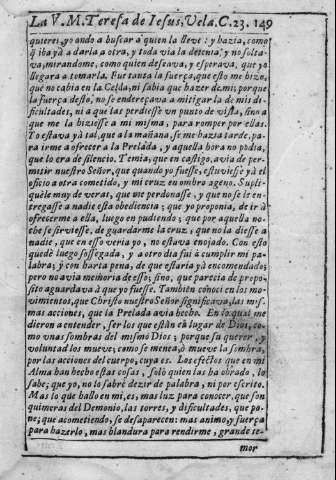 La V. M. Teresa de Iesus, Vela. C. 23. 149
quiere; yo ando a buscar a quien la lleve: y hazia, como
q̃ iba yà a darla a otra, y toda via la detenia, y no solta-
va, mirandome, como quien deseava, y esperava, que yo
llegara a tomarla. Fue tanta la fuerça, que esto me hizo,
que no cabia en la Celda, ni sabia que hazer de mi; porque
la fuerça desto, no se endereçava a mitigarla de mis di-
ficultades, ni a que las perdiesse un punto de vista, sino a
que me la hiziesse a mi misma; para romper por ellas.
To estava yà tal, que a la mañana, se me hazia tarde, pa-
ra irme a ofrecer a la Prelada, y aquella hora no podia,
que lo era de silencio. Temia, que en castigo, avia de per-
mitir nuestro Señor, que quando yo fuesse, estuviesse yà el
oficio a otra cometido, y mi cruz en ombro ageno. Supli-
quèle muy de veras, que me perdonasse, y que no se le en-
tregasse a nadie esta obediencia; que yo proponia, de ir à
ofrecerme a ella, luego en pudiendo; que por aquella no-
che se sirviesse, de guardarme la cruz, que no la diesse a
nadie, que en esso veria yo, no estava enojado. Con esto
quedè luego sossegada, y a otro dia fui à cumplir mi pa-
labra; y con harta pena, de que estaria yà encomendado;
pero no avia memoria de esso; sino, que parecia de propo-
sito aguardava à que yo fuesse. Tambien conoci en los mo-
vimientos, que Christo nuestro Señor significava, las mis-
mas acciones, que la Prelada avia hecho. En lo qual me
dieron a entender, ser los que estàn en lugar de Dios, co-
mo unas sombras del mismo Dios; porque su querer, y
voluntad los mueve; como se menea, ò mueve la sombra,
por las acciones del cuerpo, cuya es. Los efectos que en mi
Alma han hecho estas cosas, solo quien las ha obrado, lo
sabe; que yo, no lo sabrè dezir de palabra, ni por escrito.
Mas lo que hallo en mi, es, mas luz para conocer, que son
quimeras del Demonio, las torres, y dificultades, que po-
ne; que acometiendo, se desaparecen: mas animo, y fuerça
para hazerlo, mas blandura para rendirme, grande te-
mor